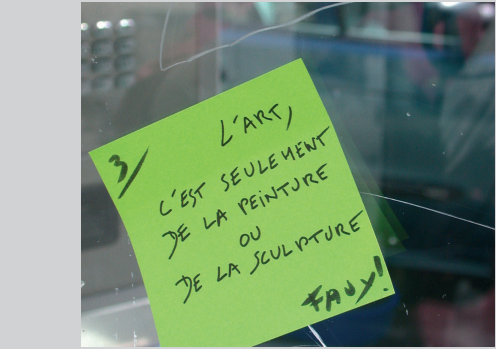 3/
L'ART,
C'EST SEULEMENT
DE LA PEINTURE
OU
DE LA SCULPTURE
FAUX!